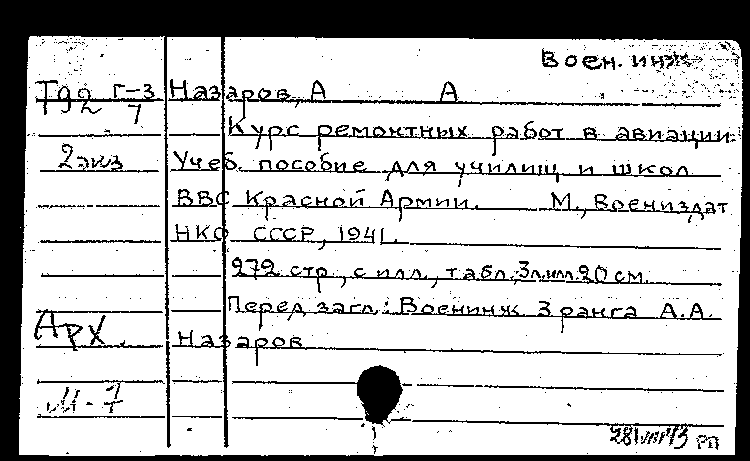 Воен. инж
Т92 Г-3/7 Назаров, А А
Курс ремонтных работ в авиации.
2экз Учеб. пособие для училищ и школ
ВВС Красной Армии. М., Воениздат
НКО СССР, 1941.
272 стр., с илл., табл., 3л.илл. 20 см.
Перед загл.: Военинж 3 ранга А.А.
Арх. Назаров
М-7
РП